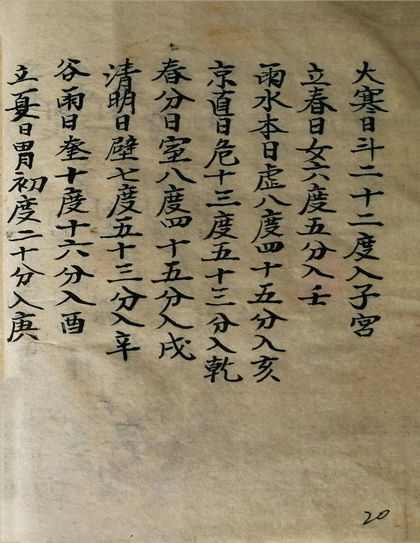 大寒日斗二十二度入子宮
立春日女六度五分入壬
雨水本日虛八度四十五分入亥
京直日危十三度五十三分入乾
春分日室八度四十五分入戌
清明日壁七度五十三分入辛
谷雨日奎十度十六分入酉
立夏日胃初度二十分入庚
20